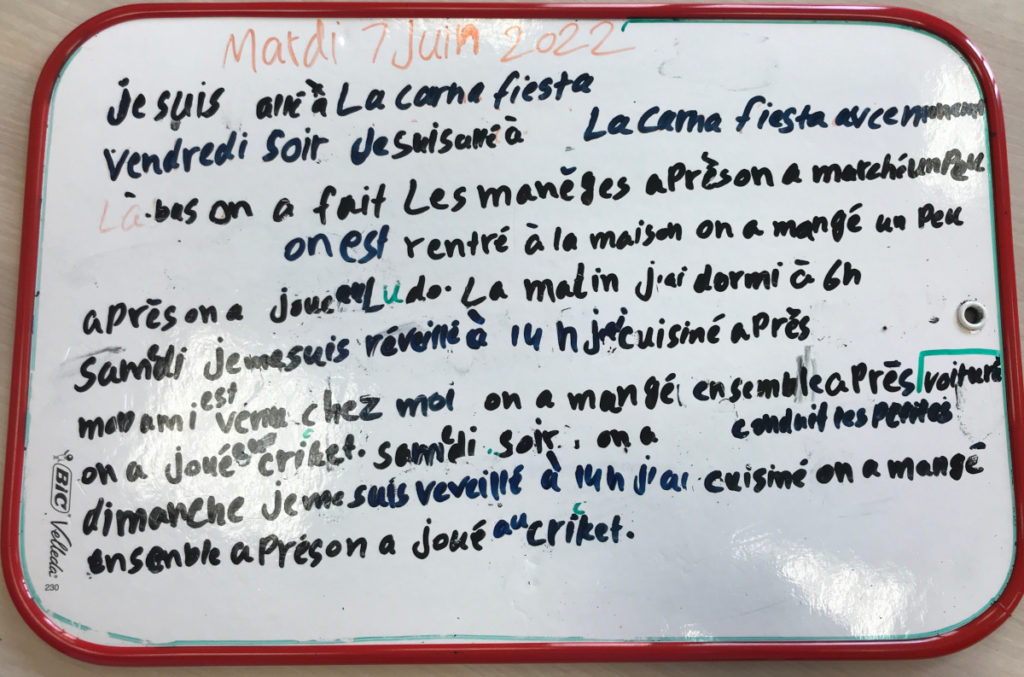 Mardi 7 Juin 2022
je suis allé à La carna fiesta
vendredi soir Je suis allé à La carna fiesta avec
Là-bas on a fait Les manèges après on a marché un peu
on est rentré à la maison on a mangé un peu
après on a joué au Ludo. La matin j'ai dormi à 6h
samedi je me suis réveillé à 14h j'ai cuisiné après
mon ami est venu chez moi on a mangé ensemble après
on a joué au criket. samedi soir, on a conduit les petites voiture
dimanche je me suis reveillé à 14h j'ai cuisiné on a mangé
ensemble aprés on a joué au criket.
BIC Velleda
230